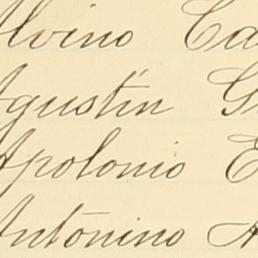 Alvino Ca
Agustín G
Apolonio E
Antonino A